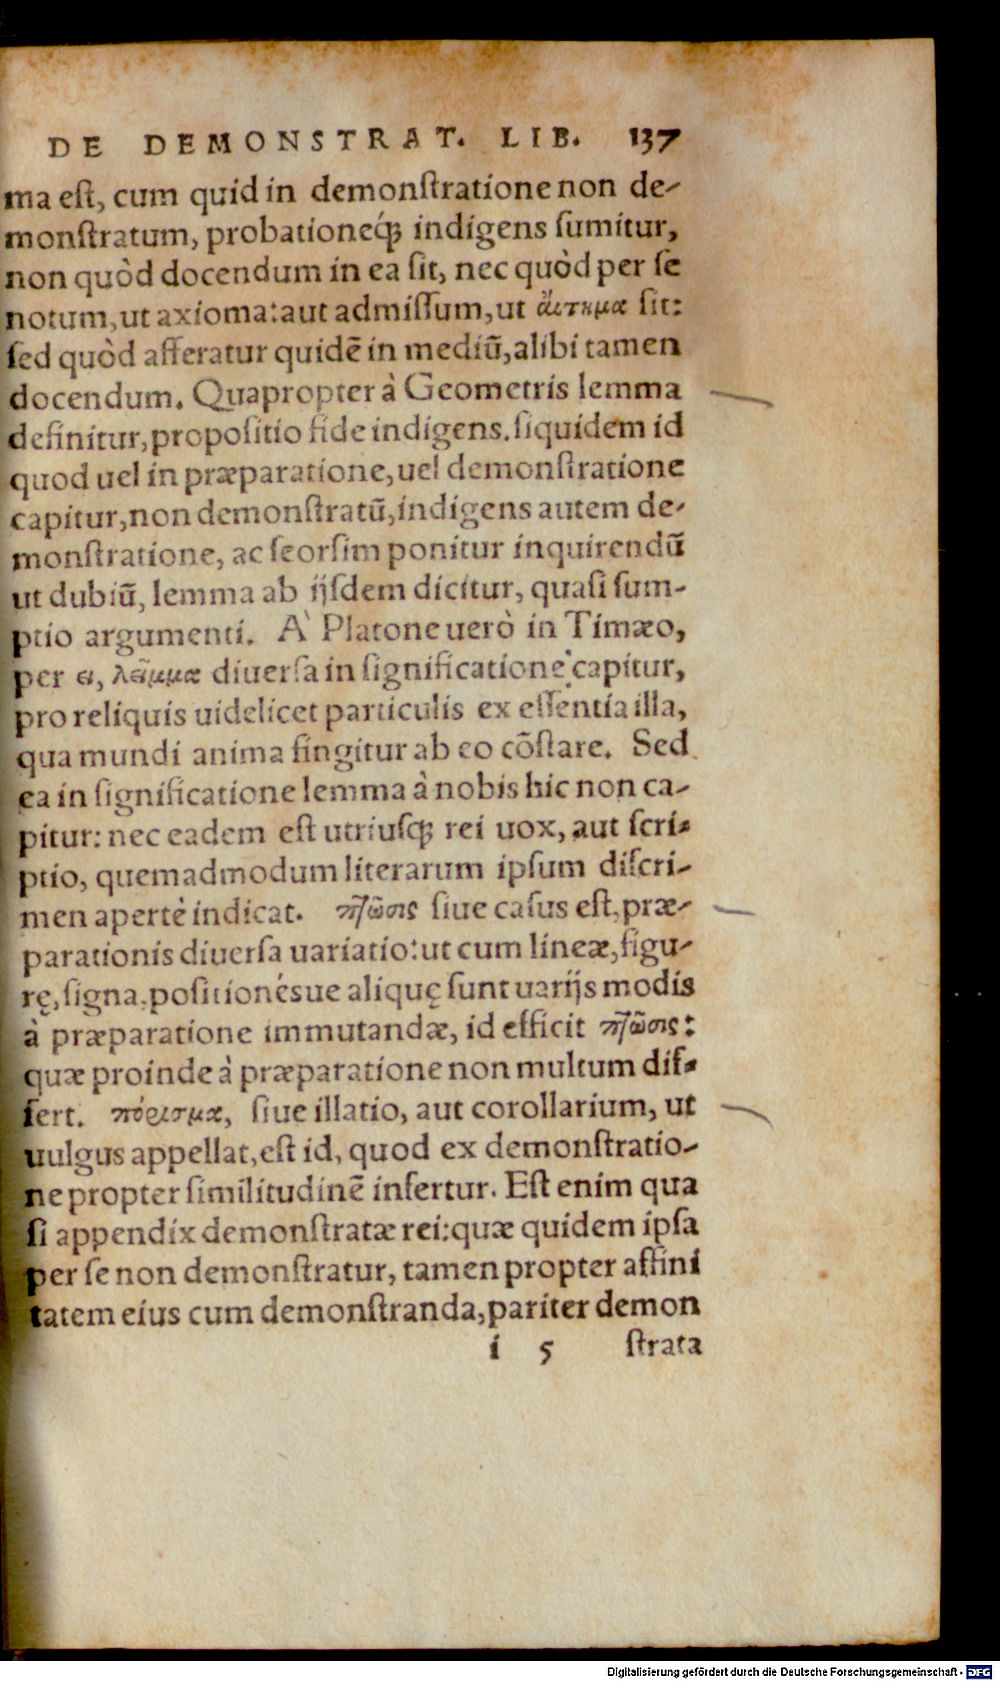 DE DEMONSTRAT. LIB. 137
ma eſt, cum quid in demonſtratione non de-
monſtratum, probationeq́ꝫ indigens ſumitur,
non quòd docendum in ea ſit, nec quòd per ſe
notum, ut axioma: aut admiſſum, ut ἄιτημα ſit:
ſed quòd afferatur quidē in mediū, alibi tamen
docendum. Quapropter à Geometris lemma
definitur, propoſitio fide indigens. ſiquidem id
quod uel in præparatione, uel demonſtratione
capitur, non demonſtratū, indigens autem de-
monſtratione, ac ſeorſim ponitur inquirendū
ut dubiū, lemma ab ijſdem dicitur, quaſi ſum-
ptio argumenti. A` Platone uerò in Timæo,
per ει, λεῖμμα diuerſa in ſignificatione capitur,
pro reliquis uidelicet particulis ex eſſentia illa,
qua mundi anima fingitur ab eo cōſtare. Sed
ea in ſignificatione lemma à nobis hic non ca-
pitur: nec eadem eſt utriuſqꝫ rei uox, aut ſcri-
ptio, quemadmodum literarum ipſum diſcri-
men apertè indicat. πτῶσις ſiue caſus eſt, præ-
parationis diuerſa uariatio: ut cum lineæ, figu-
rę, ſigna, poſitionésue aliquę ſunt uarijs modis
à præparatione immutandæ, id efficit πτῶσις:
quæ proinde à præparatione non multum dif-
fert. πόρισμα, ſiue illatio, aut corollarium, ut
uulgus appellat, eſt id, quod ex demonſtratio-
ne propter ſimilitudinē infertur. Eſt enim qua
ſi appendix demonſtratæ rei: quæ quidem ipſa
per ſe non demonſtratur, tamen propter affini
tatem eius cum demonſtranda, pariter demon
i 5 ſtrata
Digitalisierung gefördert durch die Deutsche Forschungsgemeinschaft - DFG